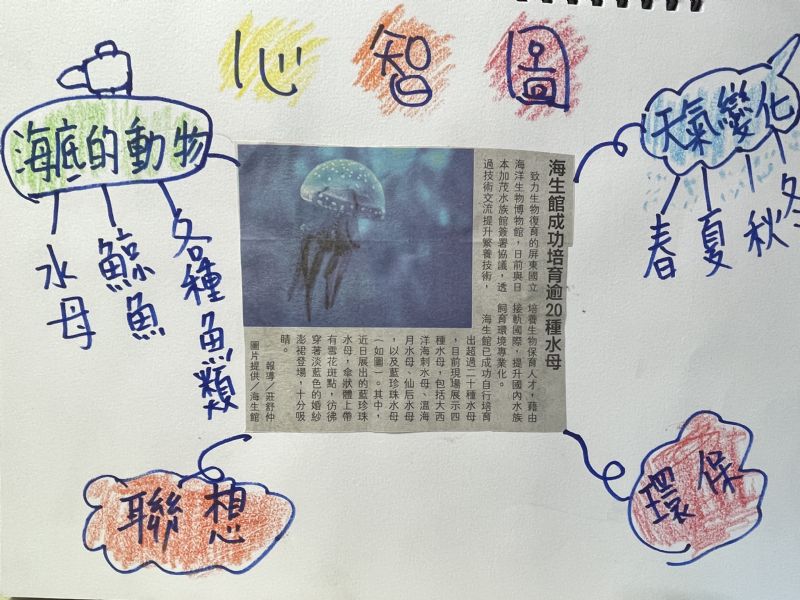 心智圖
海底的動物
水母
鯨魚
各種魚類
天氣變化
春
夏
秋
冬
海生館成功培育逾20種水母
致力生物復育的屏東國立
海洋生物博物館，日前與日
本加茂水族館簽署協議，透
過技術交流提升繁養技術，
培養生物保育人才，藉由
接軌國際，提升國內水族
飼育環境專業化。
海生館已成功自行培育
出超過二十種水母
，目前現場展示四
種水母，包括大西
洋海刺水母、溫海
月水母、仙后水母
，以及藍珍珠水母
（如圖）。其中，
近日展出的藍珍珠
水母，傘狀體上帶
有雪花斑點，彷彿
穿著淡藍色的婚紗
澎裙登場，十分吸
睛。
報導／莊舒仲
圖片提供／海生館
聯想
環保